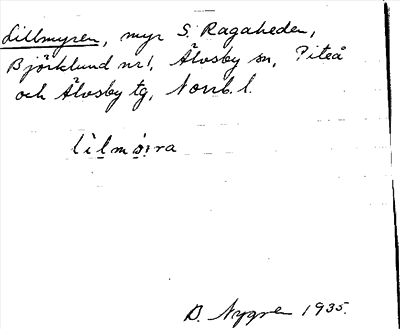 Lillmyren, myr S. Ragaheden,
Björklund nr 1, Älvsby sn, Piteå
och Älvsby tg, Norrb. l.
lìlmy̨ra
D. Nygren 1935.